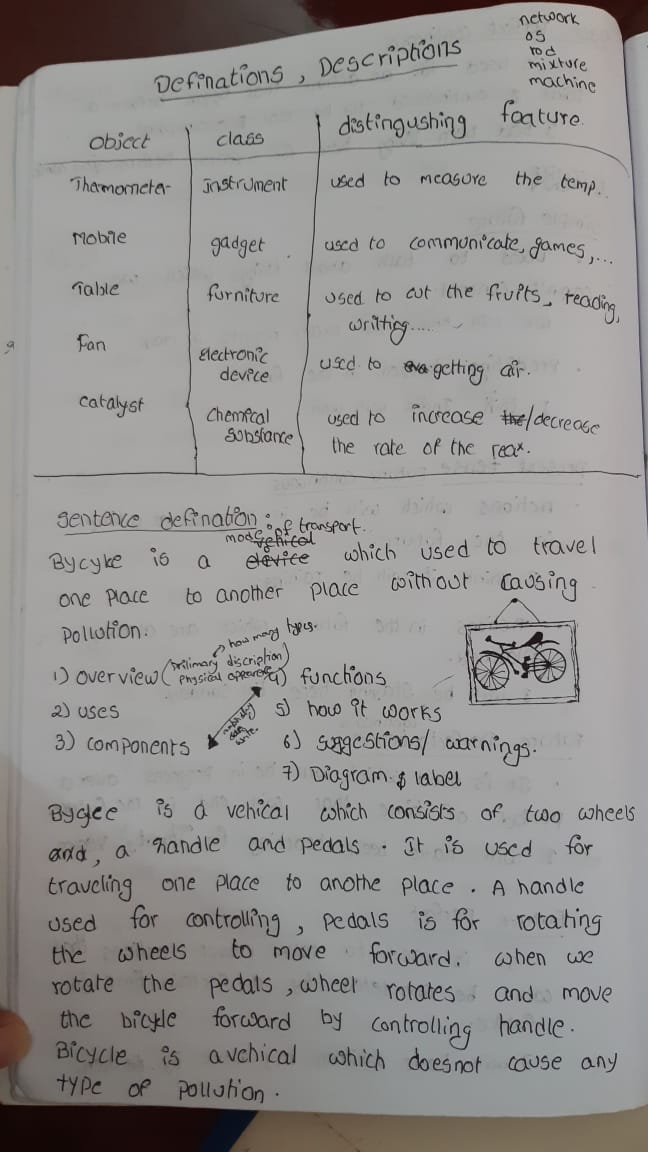 network
os
rod
mixture
machine
Definations, Descriptions
object class distingushing feature.
Thamometer instrument used to measure the temp.
Mobile gadget used to communicate, games,...
Table furniture used to cut the fruits, reading,
writing.....
Fan electronic device used to getting air.
catalyst chemical substance used to increase the/decrease
the rate of the reax.
sentence defination:
mode of transport.
vehical
Bycyke is a device which used to travel
one place to another place without causing
pollution.
how many types.
1) overview (prilimary discription)
physical apperence
4) functions
2) uses
5) how it works
3) components
6) suggestions/ warnings.
7) Diagram & label
Byclee is a vehical which consists of two wheels
and, a handle and pedals. It is used for
traveling one place to anothe place. A handle
used for controlling, pedals is for rotating
the wheels to move forward. when we
rotate the pedals, wheel rotates and move
the bicycle forward by controlling handle.
Bicycle is a vehical which doesnot cause any
type of pollution.